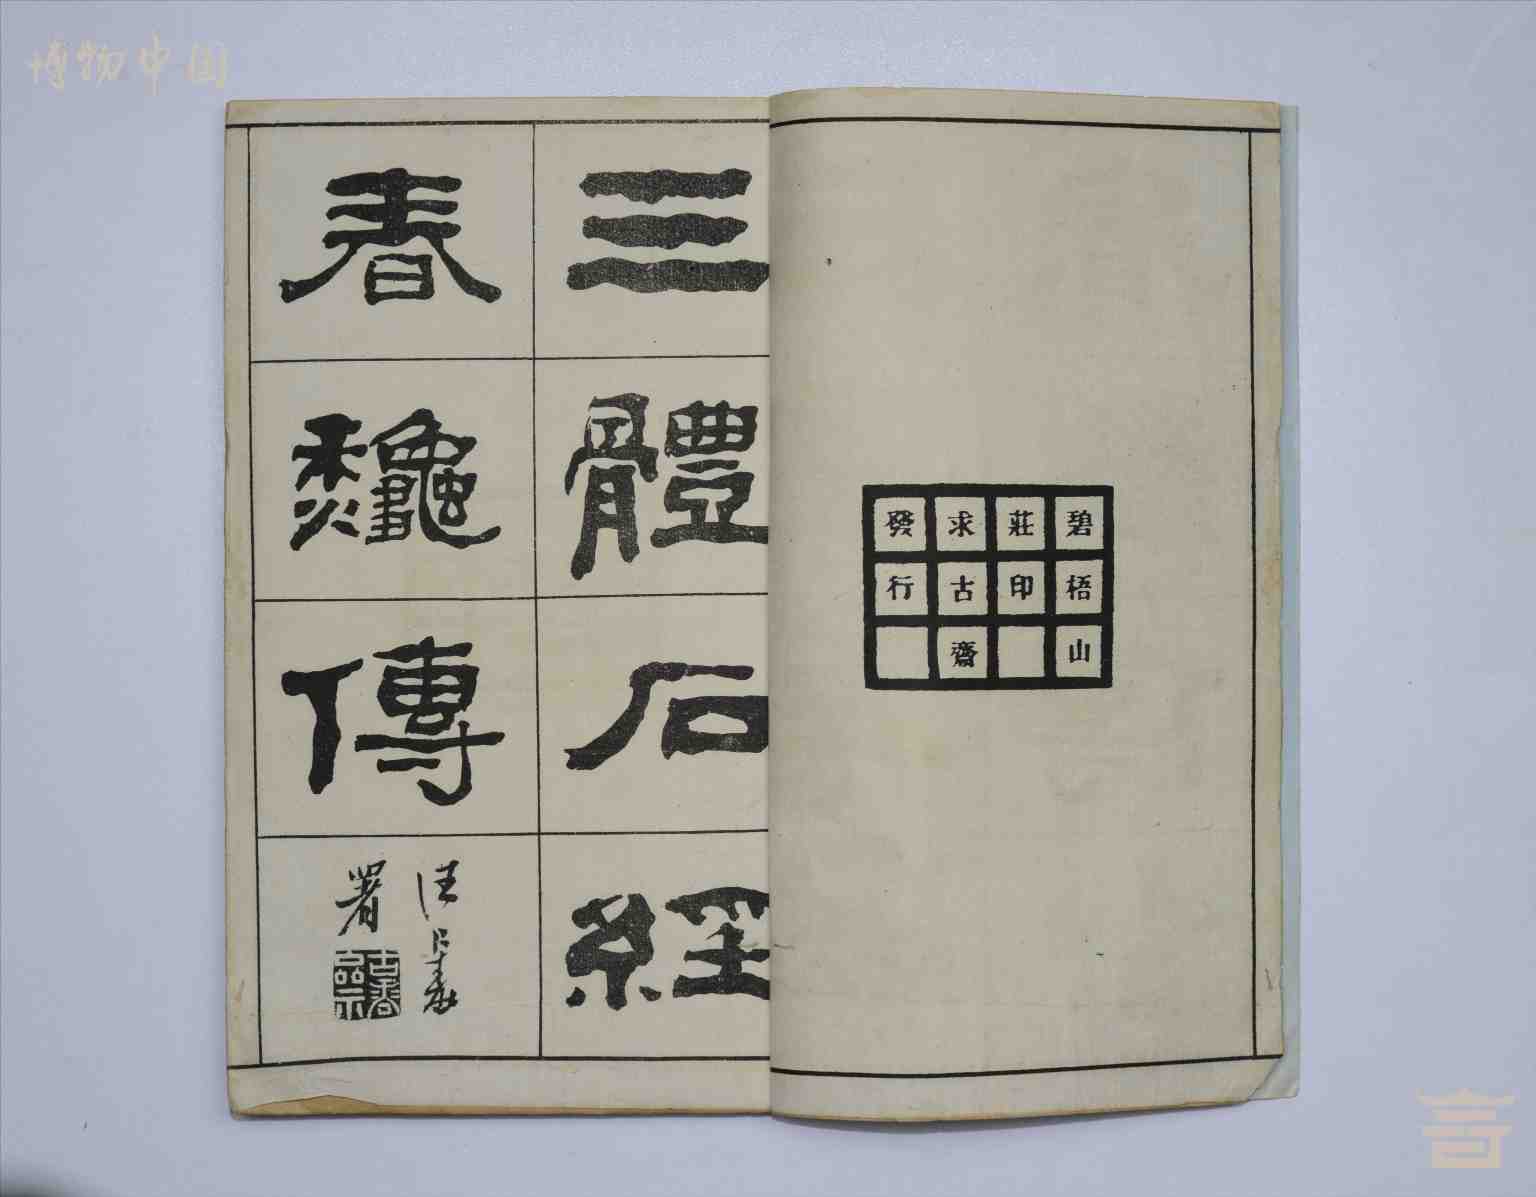 博物中国
碧梧山
莊印
求古齋
發行
三體石經
春龝傳
汪
署